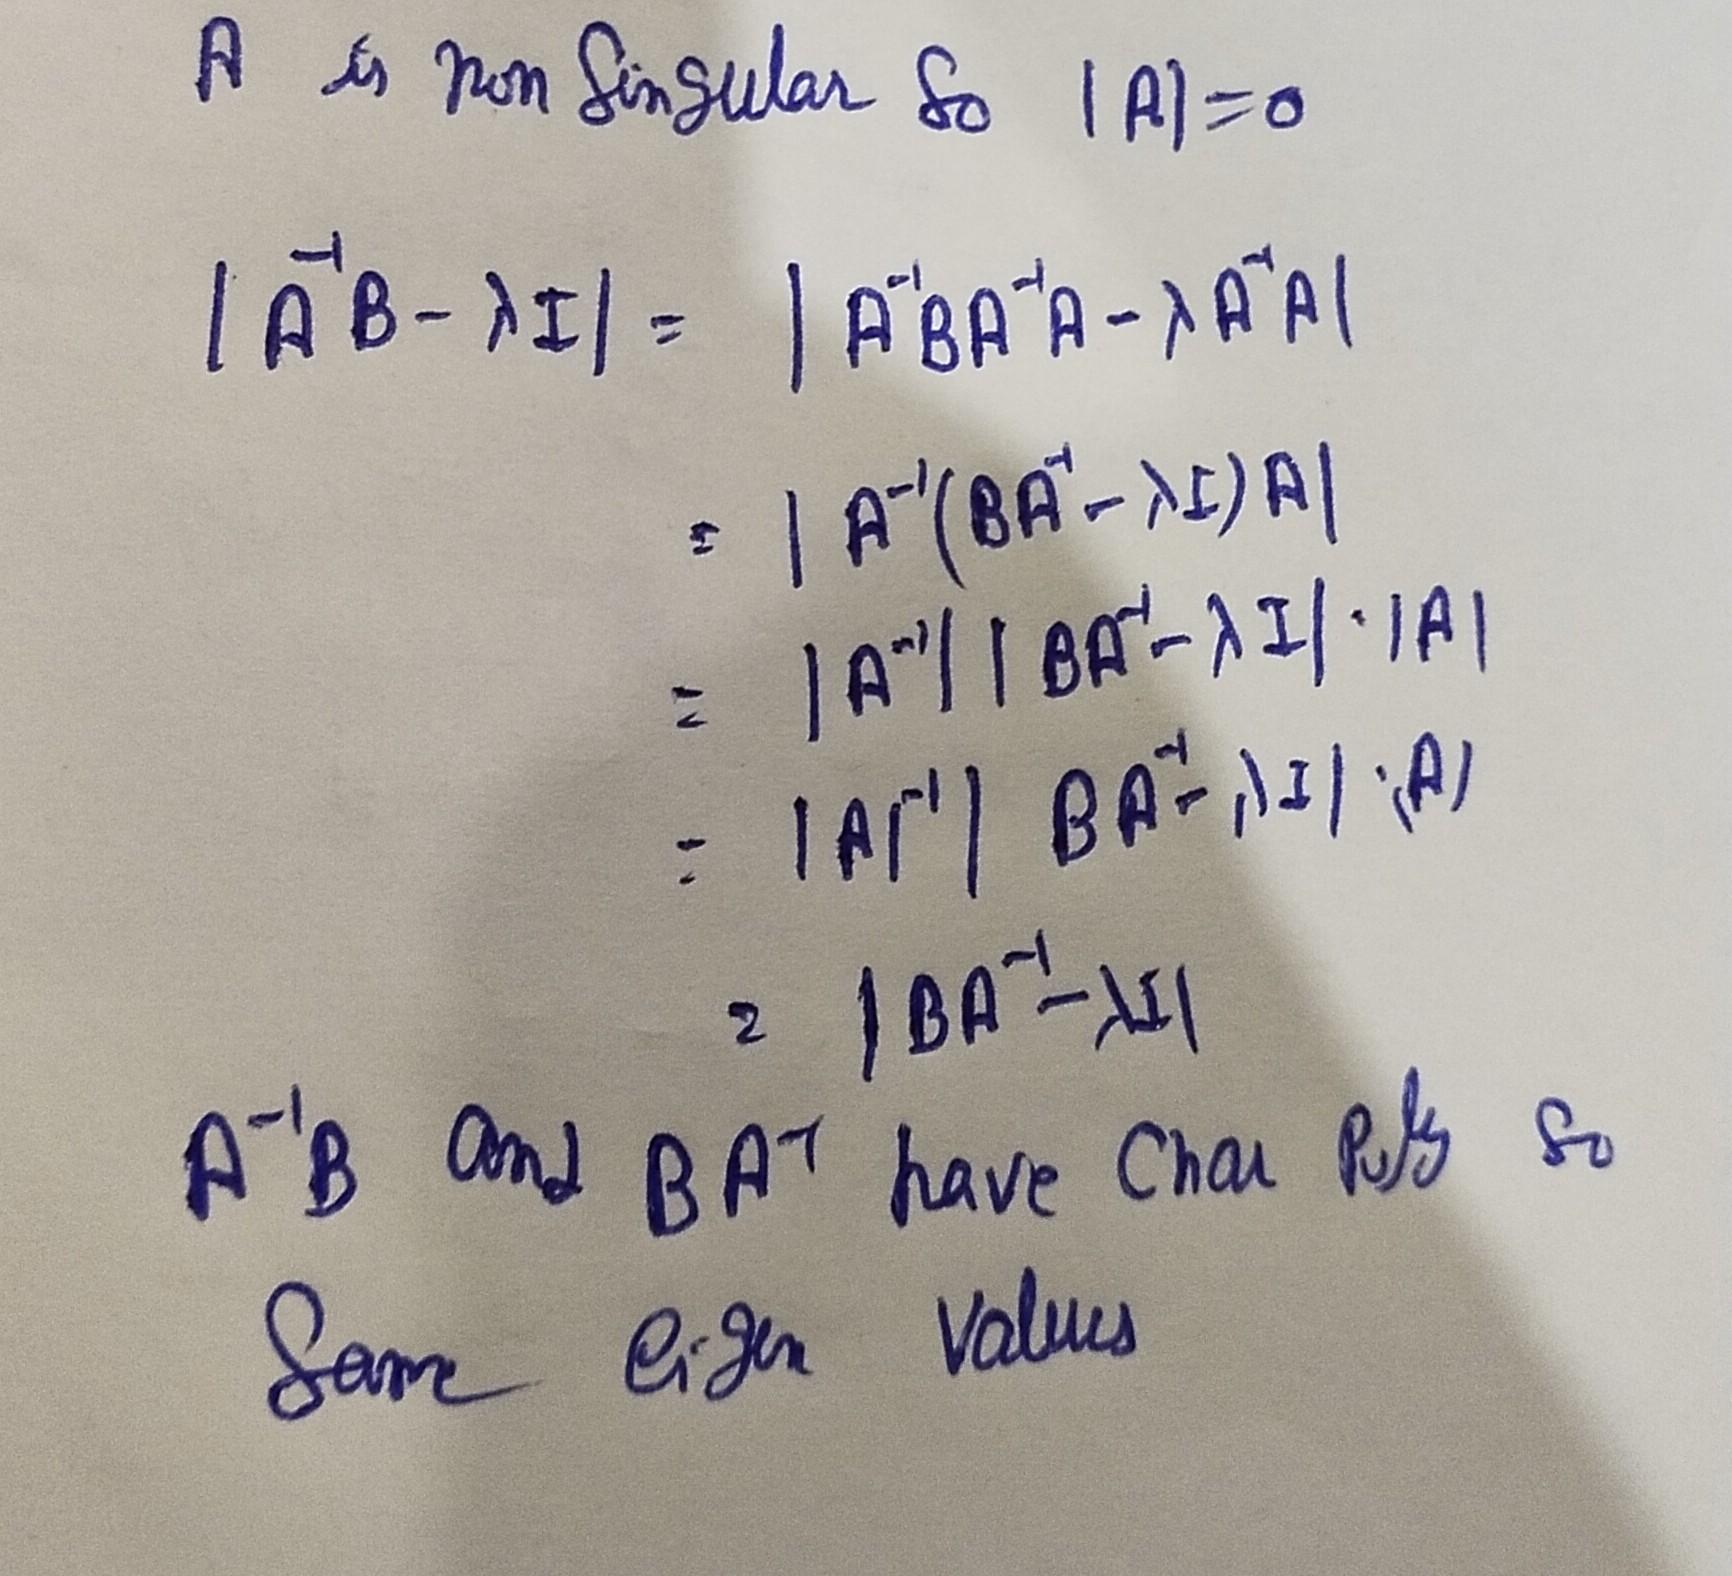 A is non Singular So |A|=0
|A⁻¹B-λI| = |A⁻¹BA⁻¹A-λA⁻¹A|
= |A⁻¹(BA⁻¹-λI)A|
= |A⁻¹||BA⁻¹-λI|·|A|
= |A|⁻¹|BA⁻¹-λI|·|A|
= |BA⁻¹-λI|
A⁻¹B and BA⁻¹ have Char Poly So
Same eigen Values